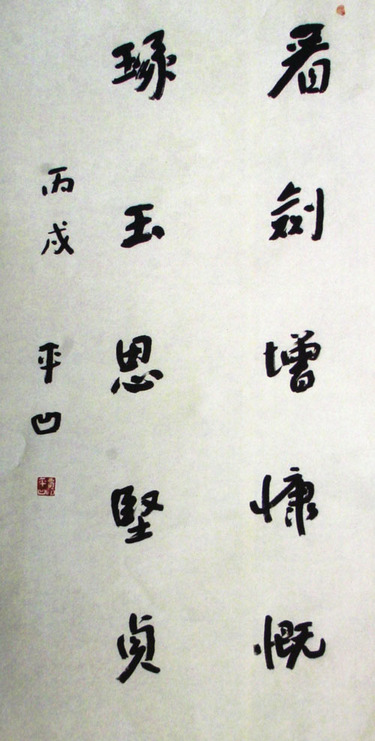 看劍增慷慨
琢玉思堅貞
丙戌 平凹